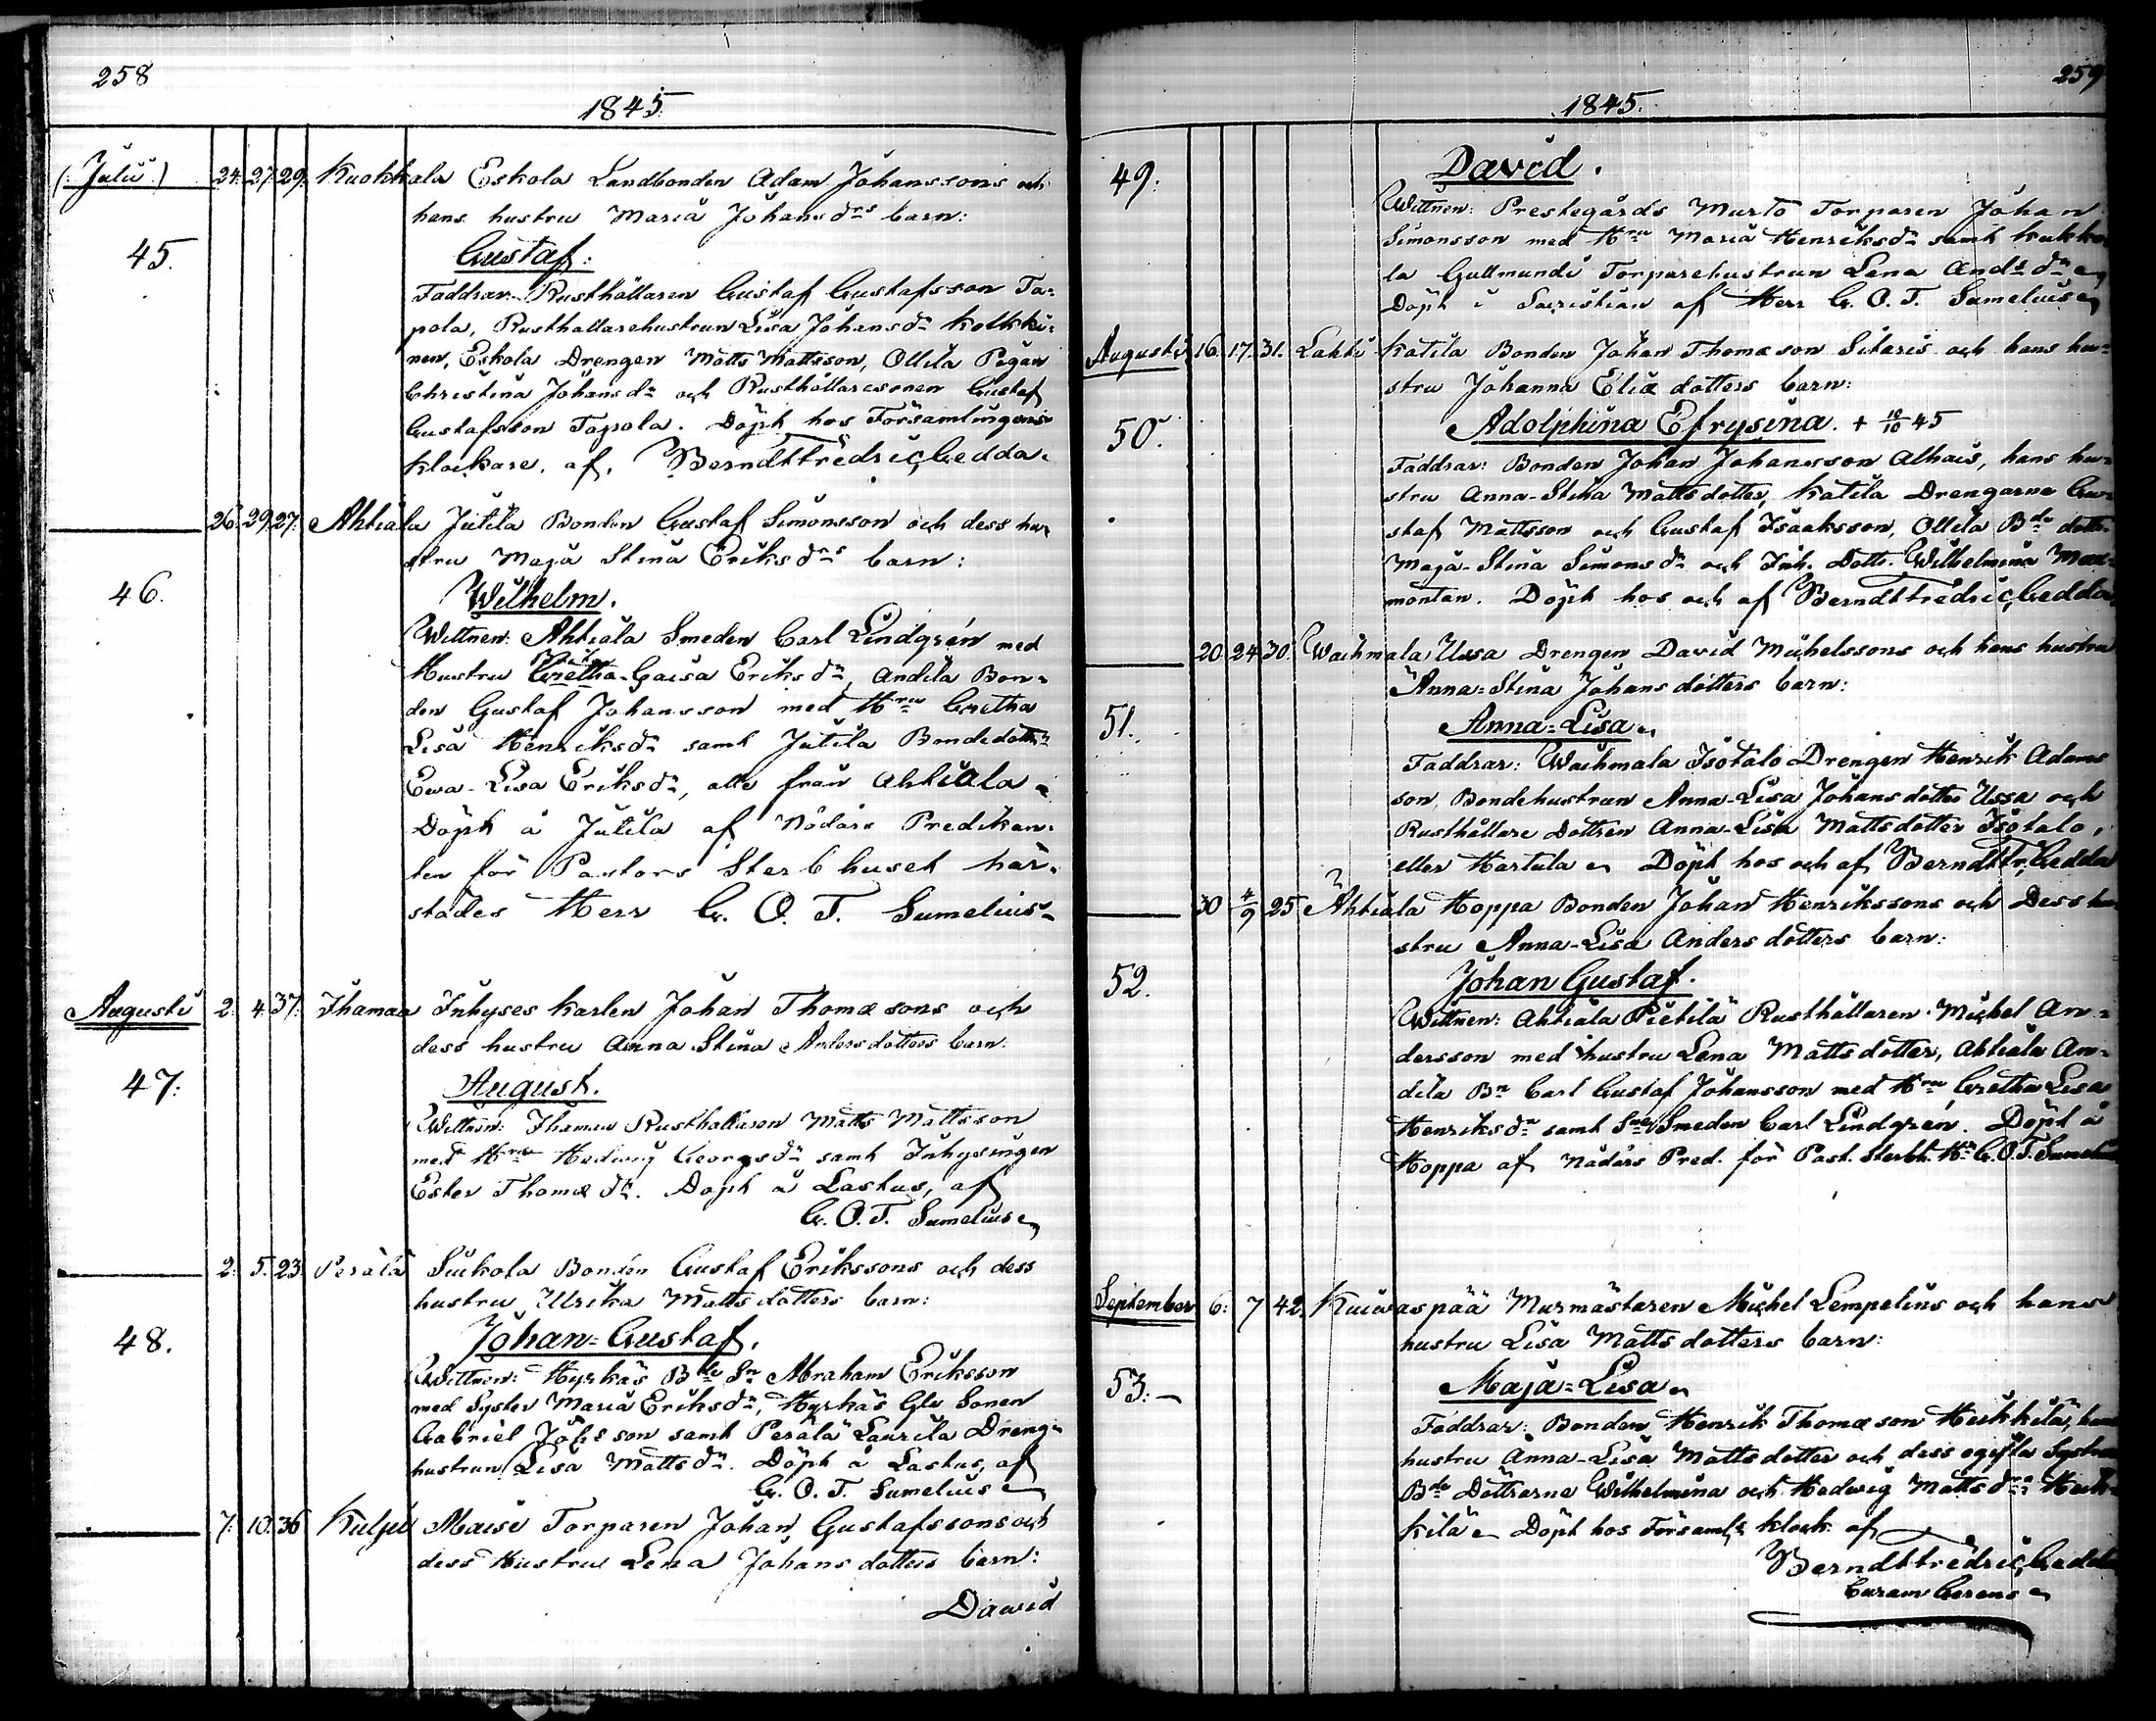 258
1845.
(: Julii :) 24. 27. 29. Kuokkala Eskola Landbonden Adam Johanssons och
hans hustru Maria Johansdrs barn:
45.
Gustaf:
Faddrar: Rusthållaren Gustaf Gustafsson Ta=
pola, Rusthållarehustrun Lisa Johansdr Kolkki=
nen, Eskola Drengen Matts Mattsson, Ollila Pigan
Christina Johansdr och Rusthållaresonen Gustaf
Gustafsson Tapola. Döpt hos Församlingens
klockare, af, Berndt Fredric Gedda.
26. 29. 27. Ahtiala Jutila Bonden Gustaf Simonsson och dess hu=
stru Maja Stina Eriksdrs barn:
46.
Wilhelm.
Wittnen: Ahtiala Smeden Carl Lindgrén med
Hustru Gretha-Caisa Eriksdr, Andila Bon=
den Gustaf Johansson med Hru Gretha
Lisa Henriksdr samt Jutila Bondedottr
Ewa-Lisa Eriksdr, alla från Ahtiala.
Döpt å Jutila af Nådårs Predikan=
ten för Pastors Sterbhuset här=
städes Herr G. O. T. Sumelius
Augusti 2. 4. 37. Ihamaa Inhyses karlen Johan Thomæsons och
dess hustru Anna Stina Andersdotters barn:
47.
August.
Wittnen: Ihamaa Rusthållaren Matts Mattsson
med Hru Hedwig Georgsdr samt Inhysingen
Ester Thomædr. Döpt å Lastus, af
G. O. T. Sumelius
2. 5. 23. Perälä Suikola Bonden Gustaf Erikssons och dess
hustru Ulrika Mattsdotters barn:
48.
Johan=Gustaf.
Wittnen: Hyrkäs Bde Sn Abraham Eriksson
med Syster Maria Eriksdr, Hyrkäs Sonen
Gabriel Johsson samt Perälä Laurila Dreng=
hustrun Lisa Mattsdr. Döpt å Lastus, af
G. O. T. Sumelius
7. 10. 36 Kuljü Maisi Torparen Johan Gustafssons och
dess Hustru Lena Johansdotters barn:
David
259
1845.
49.
David.
Wittnen: Prestegårds Murto Torparen Johan
Simonsson med Hru Maria Henriksdr samt Kukko
la Gullmundi Torparehustrun Lena Andsdr
Döpt i Sacristian af Herr G. O. T. Sumelius
Augusti 16. 17. 31. Lahti Katila Bonden Johan Thomæson Sitaris och hans hu=
stru Johanna Eliædotters barn:
50.
Adolphina Efrysina. + 10/10 45
Faddrar: Bonden Johan Johansson Alhais, hans hu=
stru Anna-Stina Mattsdotter, Katila Drengarne Gu=
staf Mattsson och Gustaf Isaaksson, Ollila Bde dottr
Maja-Stina Simonsdr och Inh. Dottr. Wilhelmina Mon=
montan. Döpt hos och af Berndt Fredric Gedda
20. 24. 30. Waihmala Ussa Drengen David Michelssons och hans hustru
Anna=Stina Johansdotters barn:
51.
Anna=Lisa
Faddrar: Waihmala Isotalo Drengen Henrik Adams
son, Bondehustrun Anna-Lisa Johansdotter Ussa och
Rusthållare Dottren Anna-Lisa Mattsdotter Isotalo,
eller Hartula Döpt hos och af Berndt Fr. Gedda
30 4/9 25 Ahtiala Hoppa Bonden Johan Henrikssons och Dess hu
stru Anna-Lisa Andersdotters barn:
52.
Johan Gustaf.
Wittnen: Ahtiala Pietilä Rusthållaren Michel An=
dersson med hustru Lena Mattsdotter, Ahtiala An=
dila Bn Carl Gustaf Johansson med Hru Gretha Lisa
Henriksdr samt Smeden Carl Lindgrén. Döpt å
Hoppa af Nådårs Pred. för Past. Sterbh. Hr G. O. T. Sumelius
September 6. 7 42. Kuiwaspää Murmästaren Michel Lempelius och hans
hustru Lisa Mattsdotters barn:
53.
Maja=Lisa
Faddrar: Bonden Henrik Thomæson Heikkilä, hans
hustru Anna-Lisa Mattsdotter och dess ogifta Systrar
Bde Döttrarne Wilhelmina och Hedwig Mattsdrar Heik=
kilä Döpt hos Församls klock. af
Berndt Fredric Gedda
Curam Gerens